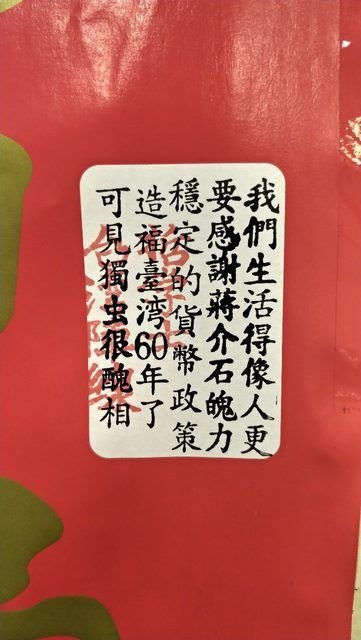 我們生活得像人更
要感謝蔣介石魄力
穩定的貨幣政策
造福臺湾60年了
可見獨虫很醜相